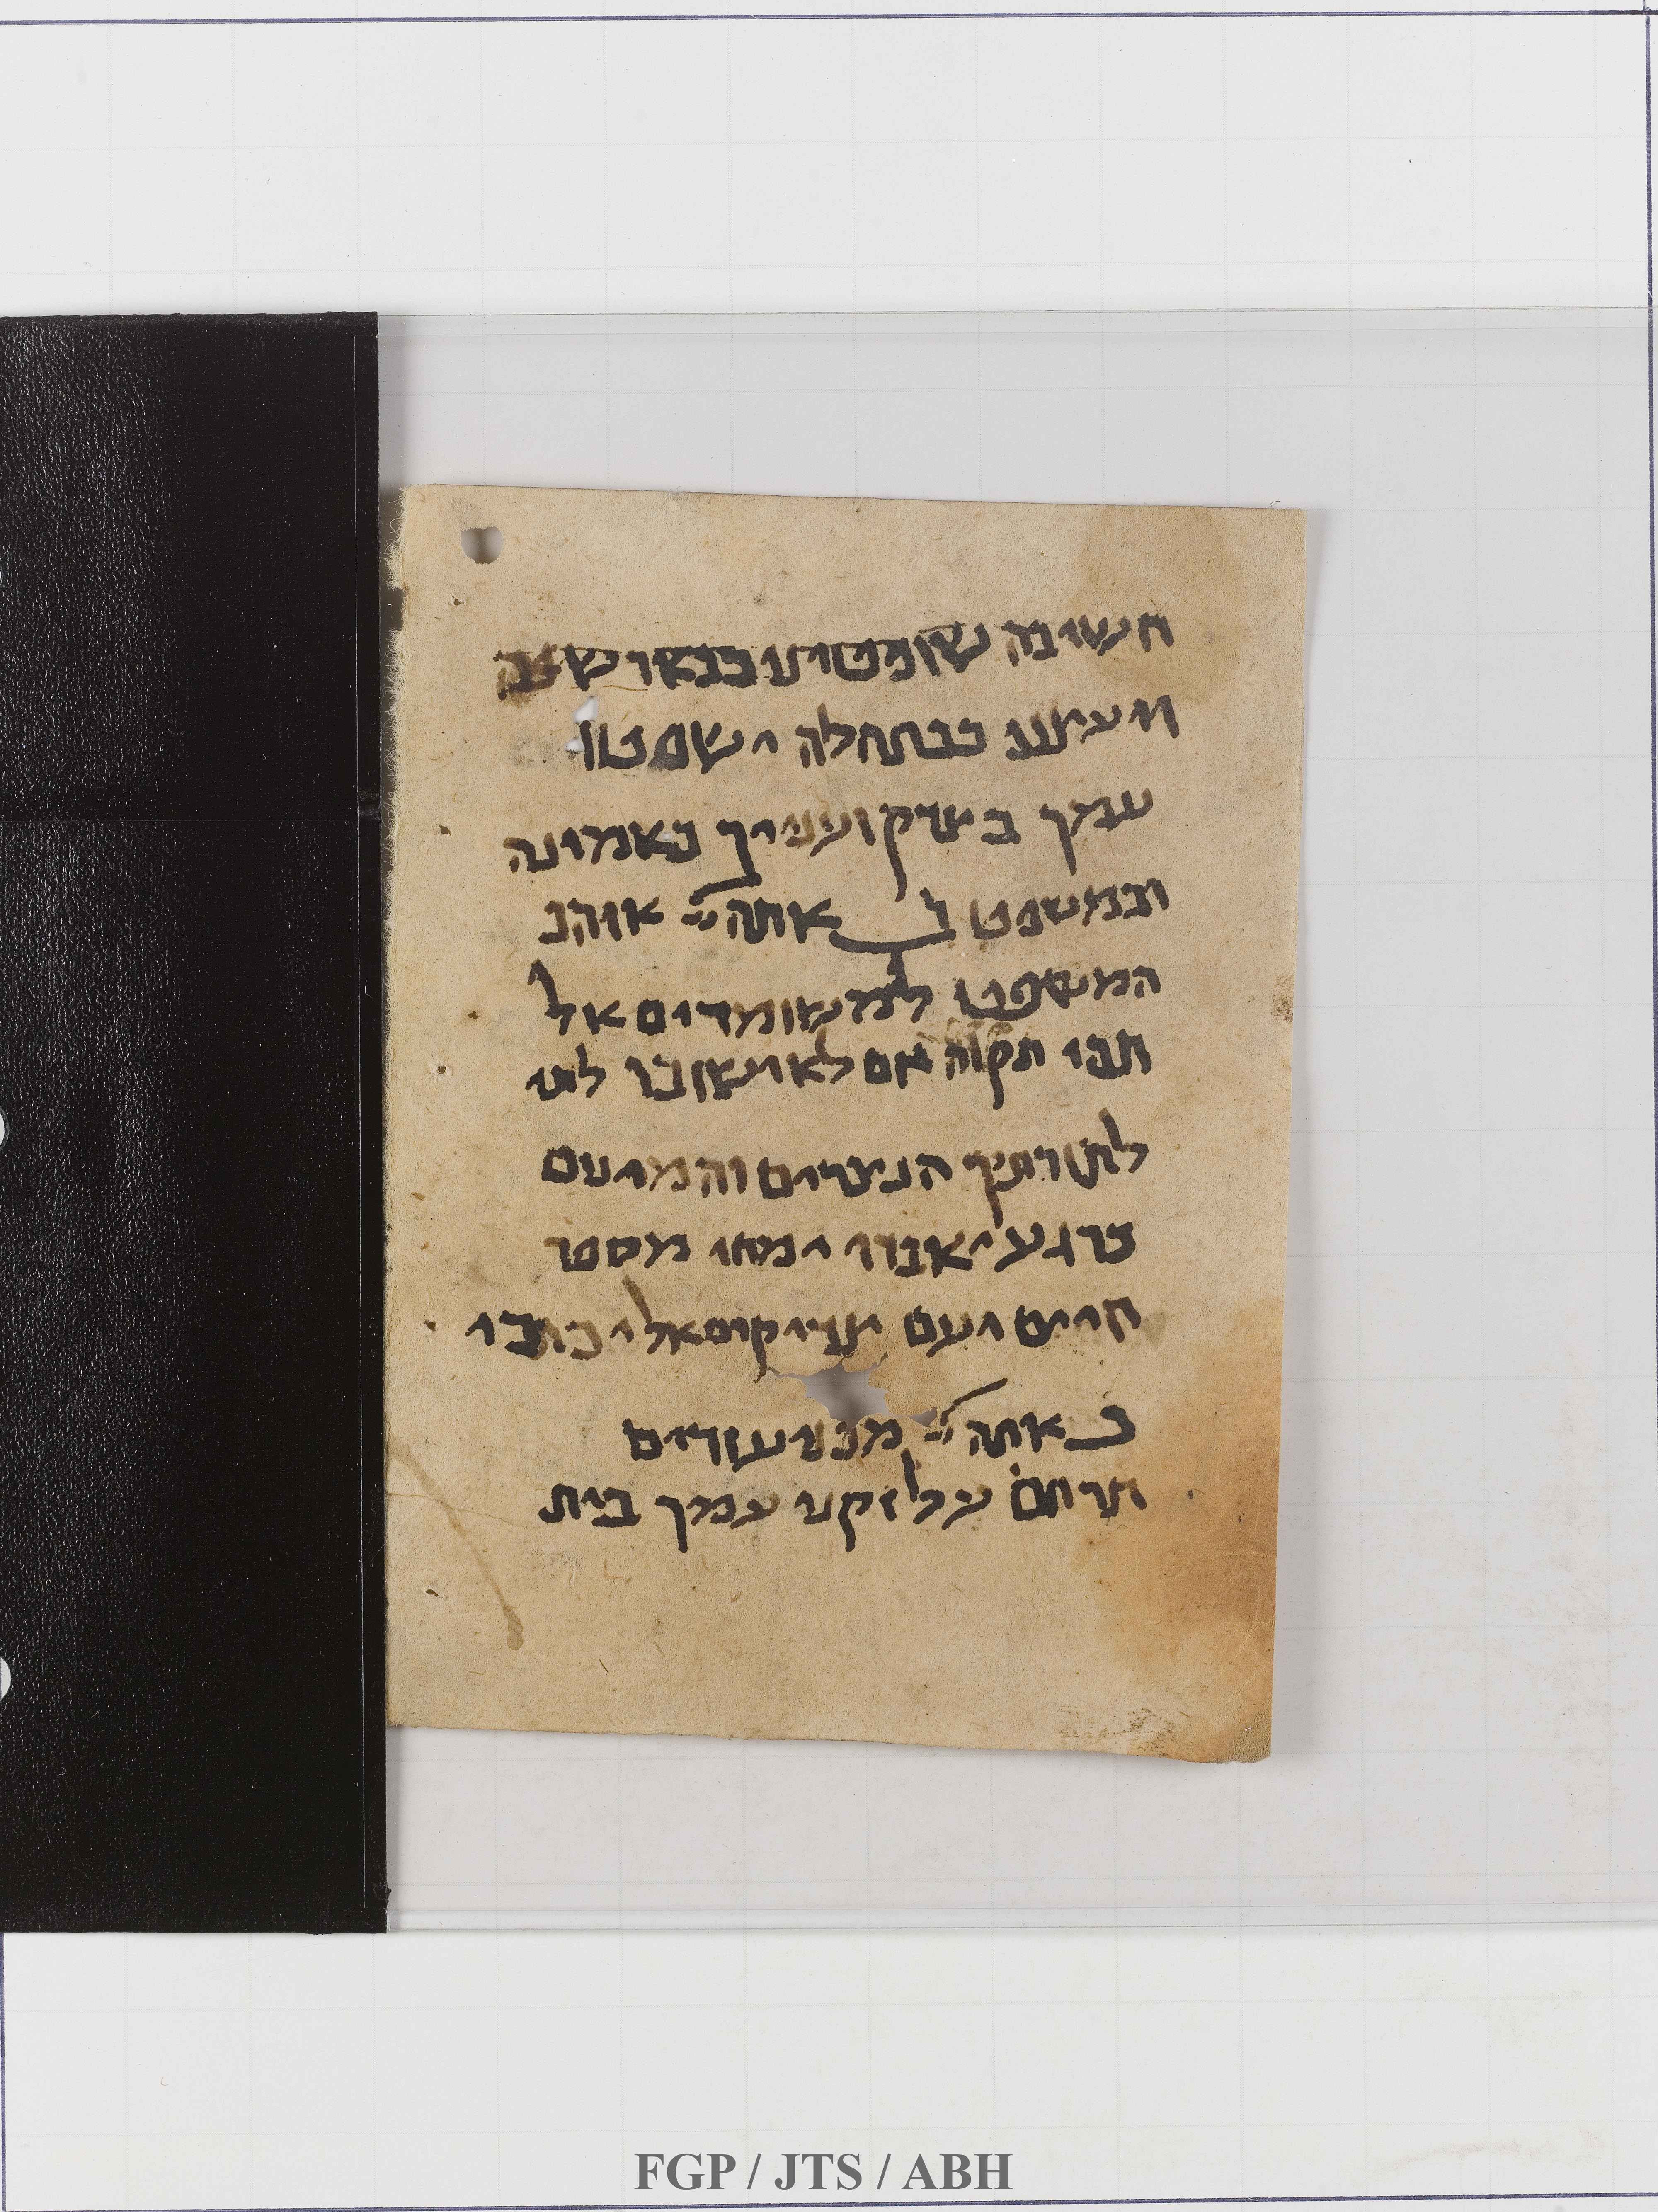 השיבה שופטינו כבארשונה
ויעיצנו כבתחלה ישפטו
עמך בצדק וענייך באמונה
ובמשפט ב אתה ייי אוהב
המשפט למשומדים אל
תהי תקוה אם לא ישובו לתו
לתורתיך הנצרים והמינים
כרגע יאבדו ימחו מספר
חיים ועם צדיקים אל יכתבו
ב אתה ייי מכניע זדים
תרחם על זקני עמך בית
FGP / JTS / ABH